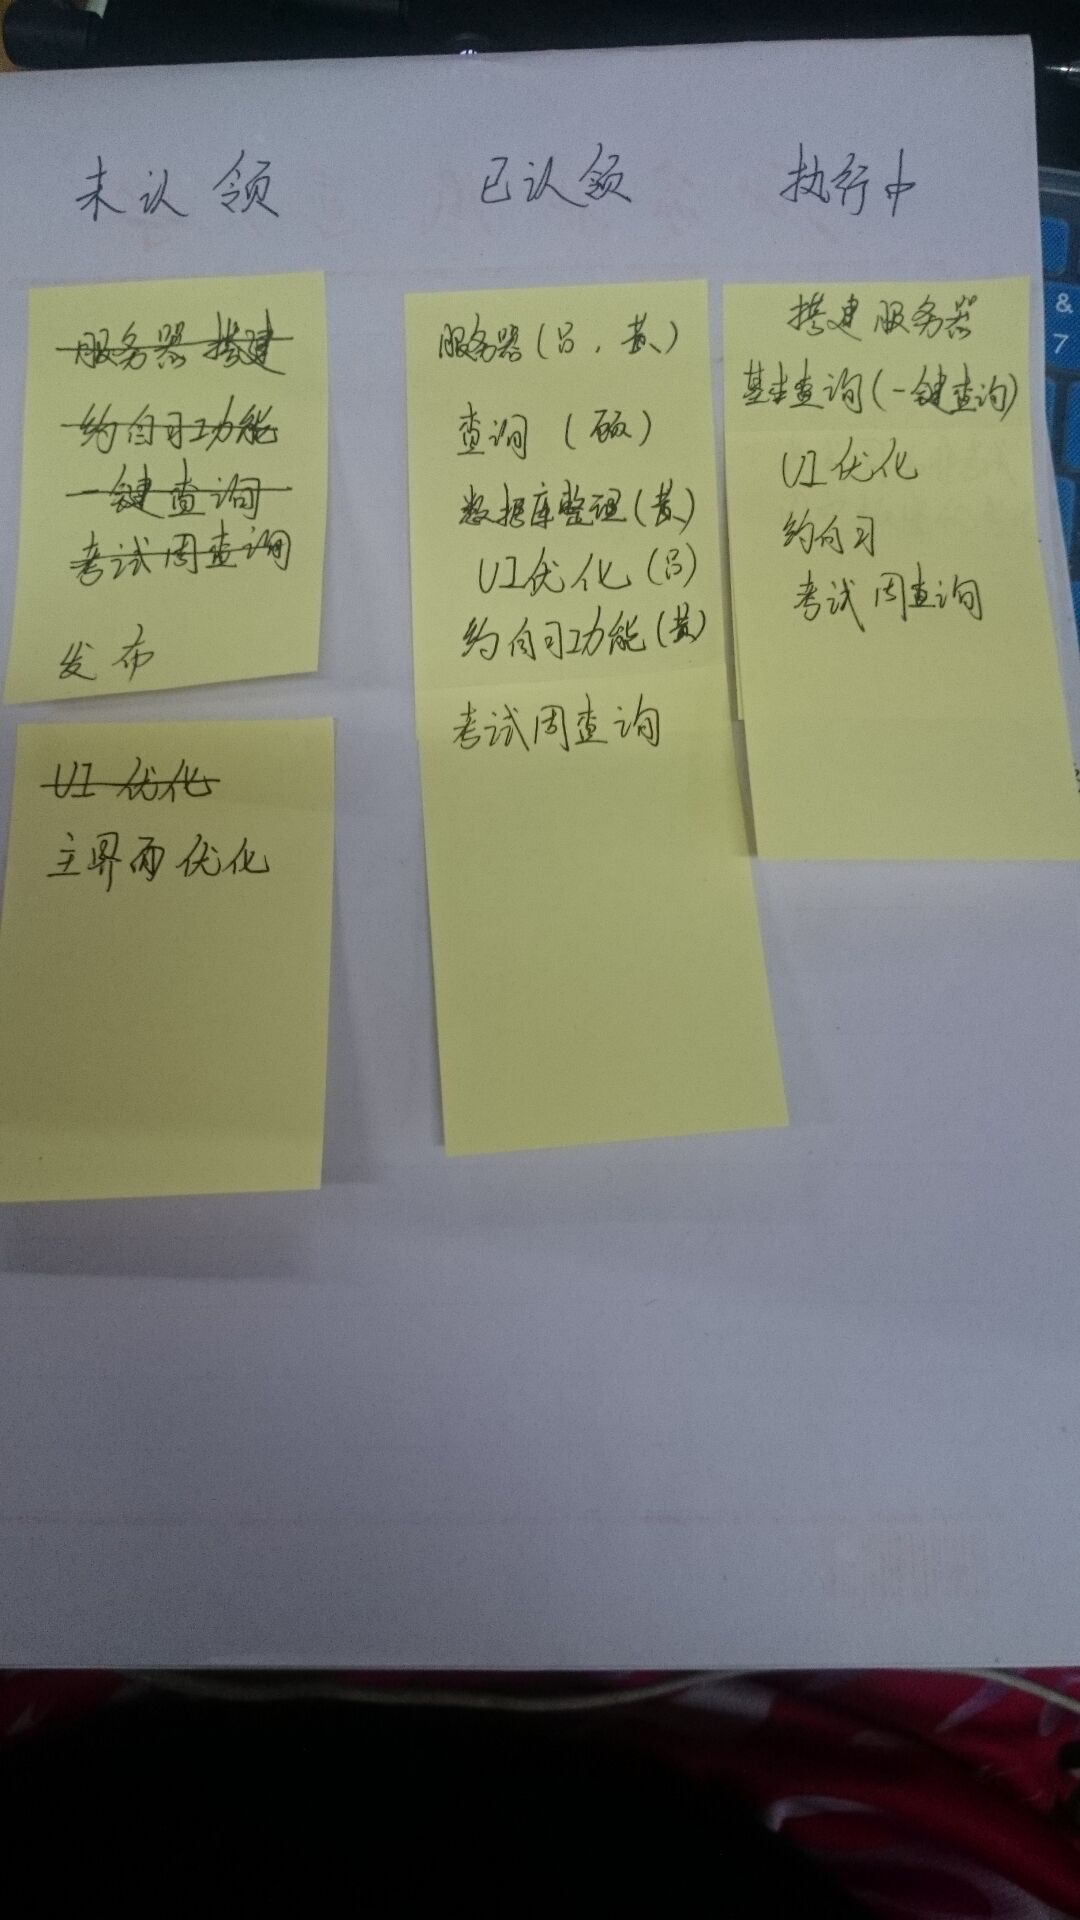 未认领
已认领
执行中
服务器搭建
约自习功能
一键查询
考试周查询
发布
UI优化
主界面优化
服务器(吕、黄)
查询(硕)
数据库整理(黄)
UI优化(吕)
约自习功能(黄)
考试周查询
搭建服务器
基本查询(一键查询)
UI优化
约自习
考试周查询
& 
7